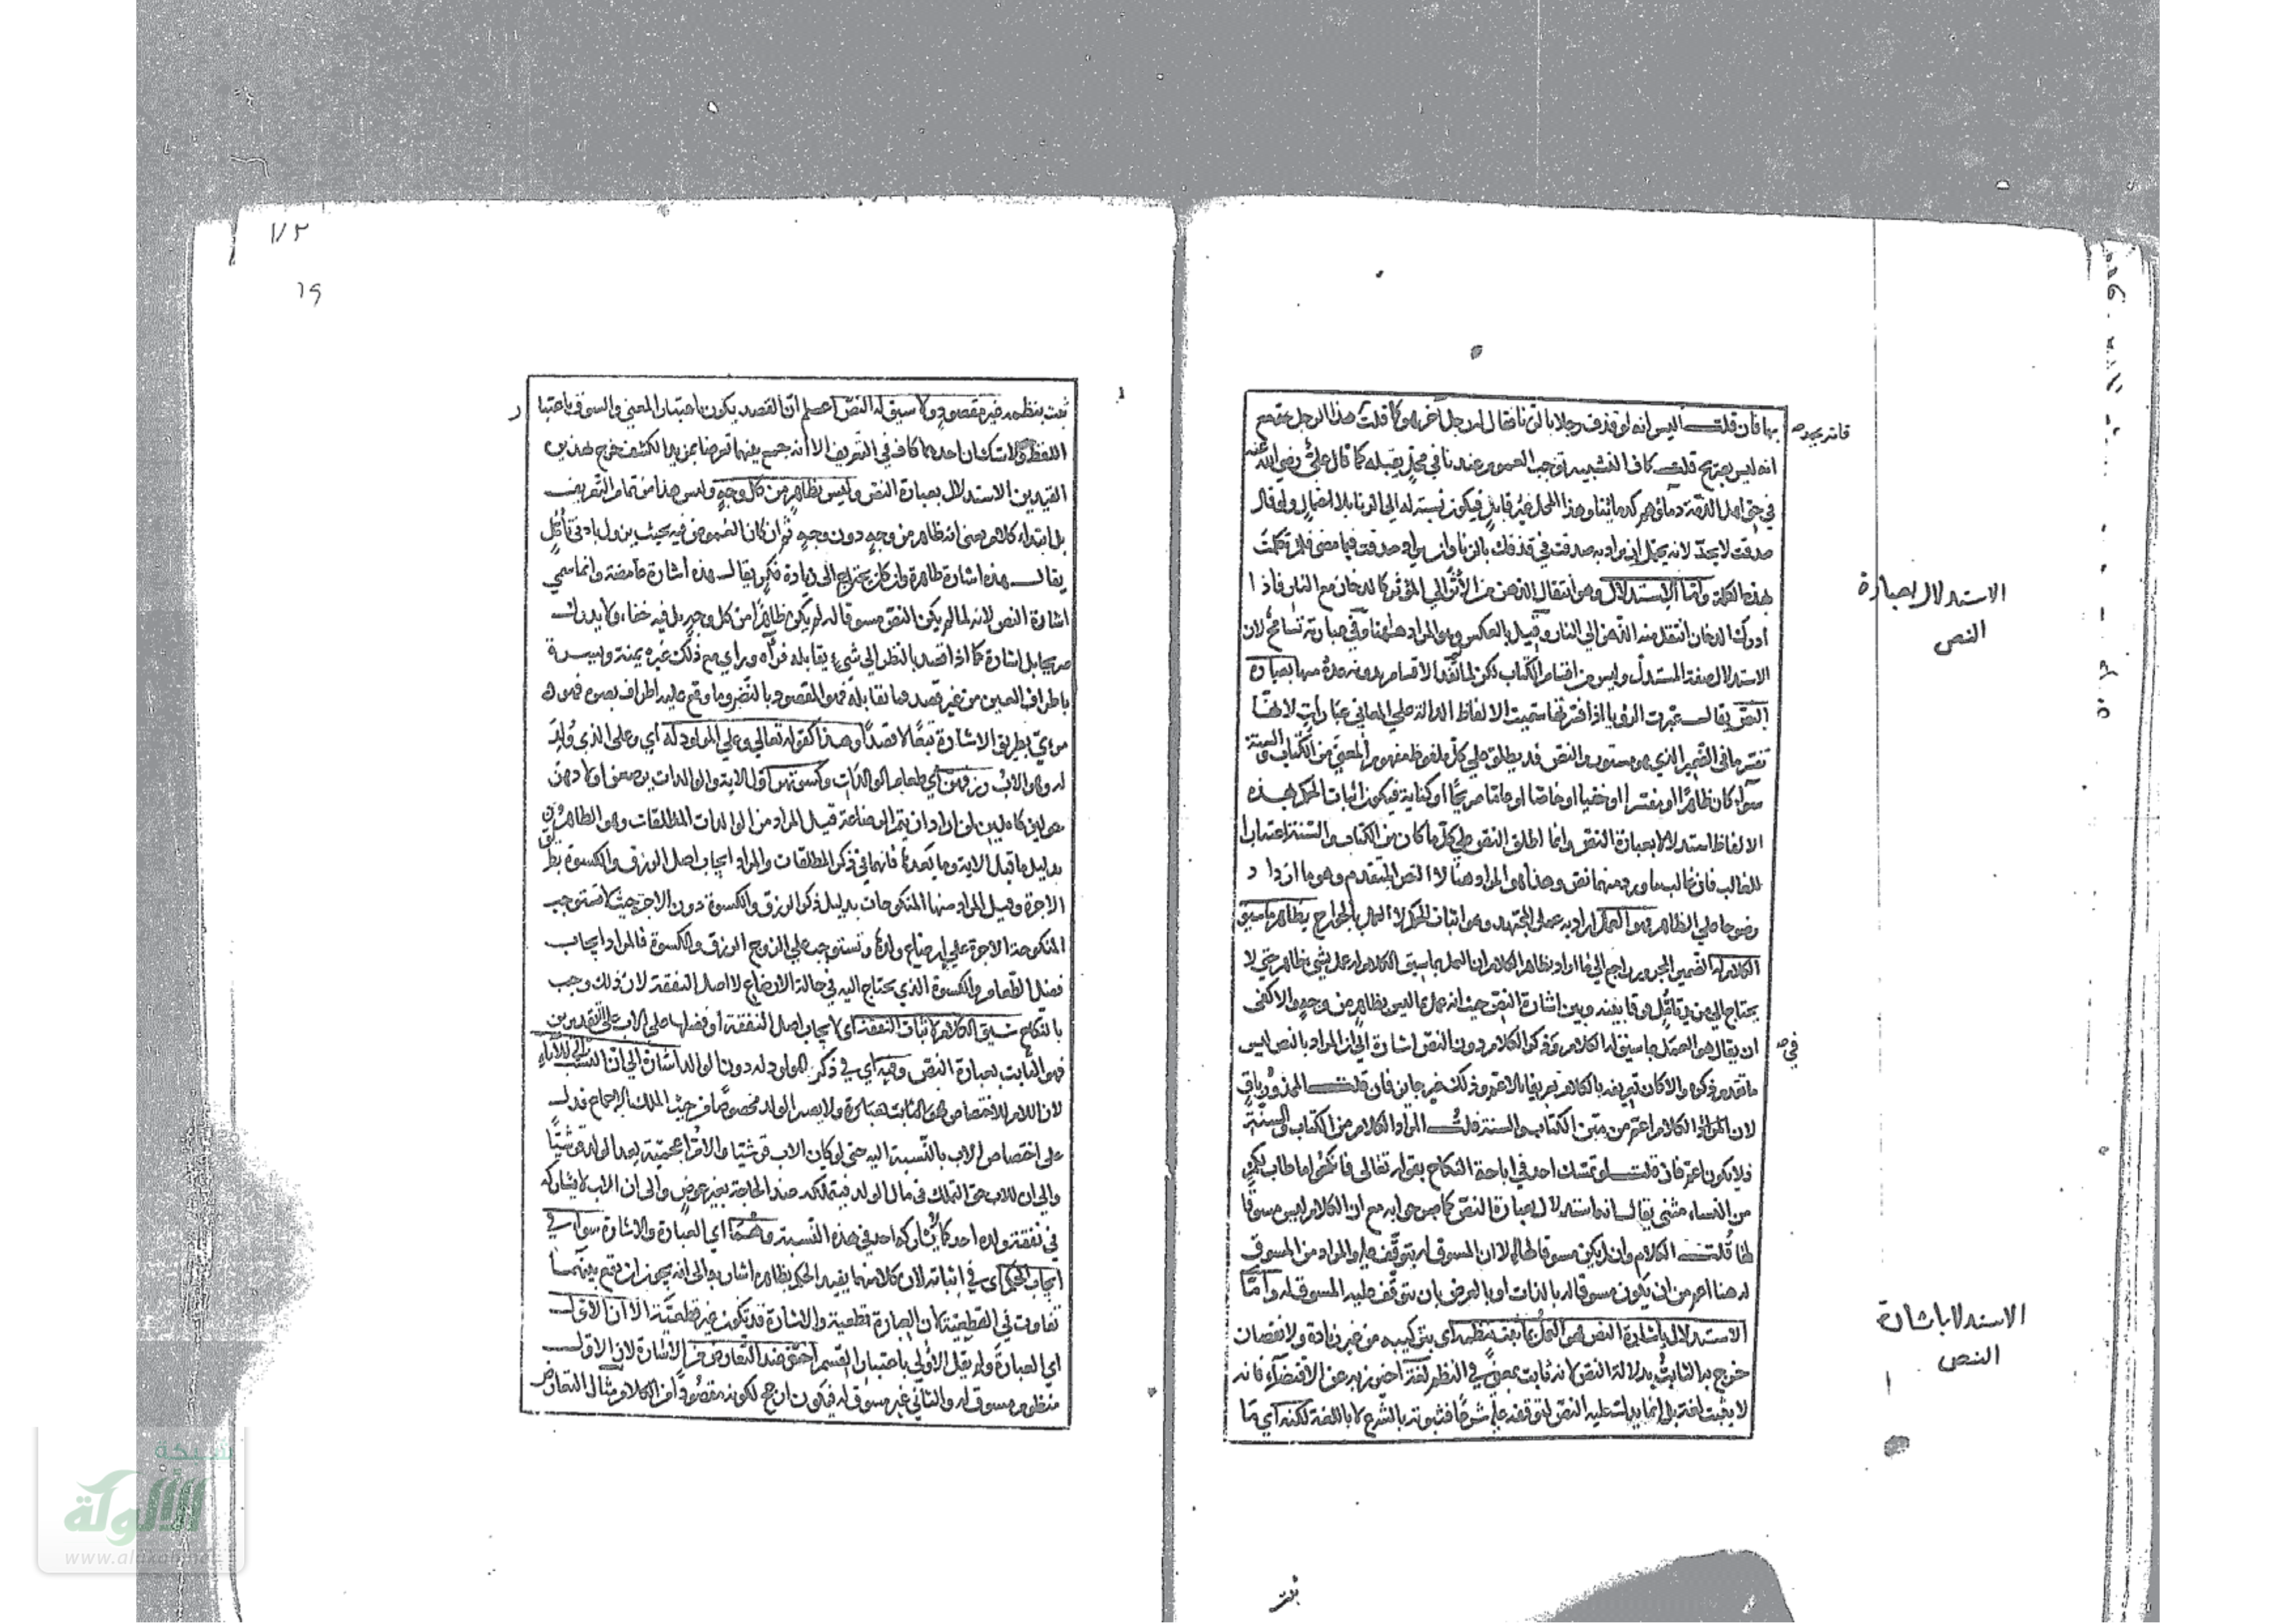 بها فان قلت اليس انه لو قذف رجلا بالزنا فقال له رجل آخر هو كما قلت هذا الرجل مع
فانه يحد صح
انه ليس بصريح قلت كاف التشبيه توجب العموم عندنا في محل يقبله كما قال علي رضي الله عنه
في حق اهل الذمة دماؤهم كدمائنا وهذا المحل غير قابل فيكون نسبته له الى الزنا بلا احتمال ولو قال
صدقت لا يحد لانه يحتمل ان يراد به صدقت في قذفك بالزنا وان يراد صدقت فيما مضى فلم تكلمت
بهذه الكلمة واما الاستدلال وهو انتقال الذهن من الاثر الى المؤثر كالدخان مع النار فاذا
الاستدلال بعبارة
النص
ادرك الدخان انتقل منه الذهن الى النار وقيل بالعكس وهو المراد ههنا وفي عبارته تسامح لان
الاستدلال صفة المستدل وليس من اقسام الكتاب لكن لما تفد الاقسام بدونه عده منها بعبارة
النص يقال عبرت الرؤيا اذا فسرتها سميت الالفاظ الدالة على المعاني عبارات لانها
تفسر ما في الضمير الذي هو مستور والنص قد يطلق على كل ملفوظ مفهوم المعنى من الكتاب والسنة
سواء كان ظاهرا او مفسرا او خفيا او خاصا او عاما صريحا او كناية فيكون اثبات الحكم بهذه
الالفاظ استدلالا بعبارة النص وانما اطلق النص على كل ما كان من الكتاب والسنة اعتبارا
للغالب فان غالب ما ورد منهما نص وهذا هو المراد هنا لا النص المتقدم وهو ما ازداد
وضوحا على الظاهر فهو العمل اراد به عمل المجتهد وهو اثبات الحكم لا العمل بالجوارح بظاهر ما سيق
الكلام له الضمير المجرور راجع الى ما اراد بظاهر الكلام ان العمل بما سيق الكلام له عمل بشيء ظاهر حتى لا
يحتاج الى مزيد تأمل فرقا بينه وبين اشارة النص حيث انه عمل بما ليس بظاهر من وجه والا كفى
ان يقال هو العمل بما سيق له الكلام وفي ذكر الكلام دون النص اشارة الى ان المراد بالنص ليس
في صح
ما تقدم ذكره والا كان تعريفه بالكلام تعريفا بالاعم وذلك غير جايز فان قلت المحذور باق
لان المراد الكلام اعم من متن الكتاب والسنة قلت المراد الكلام من الكتاب والسنة
فلا يكون اعم فان قلت لو تمسك احد في اباحة النكاح بقوله تعالى فانكحوا ما طاب لكم
من النساء مثنى يقال انه استدلال بعبارة النص كما صرحوا به مع ان الكلام ليس مسوقا
لها قلت الكلام وان لم يكن مسوقا لها الا ان المسوق له يتوقف عليه والمراد من المسوق
له هنا اعم من ان يكون مسوقا له بالذات او بالعرض بان يتوقف عليه المسوق له واما
الاستدلال باشارة النص فهو العمل بما ثبت بنظمه اى بتركيبه من غير زيادة ولا نقصان
الاستدلال باشارة
النص
خرج به الثابت بدلالة النص لانه ثابت بمعنى في النظم لغة احترز به عن الاقتضاء فانه
لا يثبت لغة بل انما يدل عليه النص لتوقفه عليه شرعا فثبوته بالشرع لا باللغة لكنه اى ما
ثبت
١٧٢
١٩
ثبت بنظمه غير مقصود ولا سيق له النص اعلم ان القصد يكون باعتبار المعنى والسوق باعتبا
ر
اللفظ ولا شك ان احدهما كاف في التعريف الا انه جمع بينهما تعرضا بمزيد الكشف خرج بهذين
القيدين الاستدلال بعبارة النص وليس بظاهر من كل وجه وليس هذا من تمام التعريف
بل ابتداء كلام يعنى انه ظاهر من وجه دون وجه ثم ان كان الغموض فيه بحيث يزول بادنى تأمل
يقال هذه اشارة ظاهرة وان كان يحتاج الى زيادة فكر يقال هذه اشارة غامضة وانما سمي
اشارة النص لانه لما لم يكن النص مسوقا له لم يكن ظاهرا من كل وجه بل فيه خفاء ولا يدرك
صريحا بل اشارة كما اذا قصد بالنظر الى شيء يقابله فرآه وراى مع ذلك غيره يمنة ويسرة
باطراف العين من غير قصد فما يقابله فهو المقصود بالنظر وما وقع عليه اطراف بصره فهو
مرئي بطريق الاشارة تبعا لا قصدا وهذا كقوله تعالى وعلى المولود له اي وعلى الذي ولد
له وهو الاب رزقهن اي طعام الوالدات وكسوتهن اول الاية والوالدات يرضعن اولادهن
حولين كاملين لمن اراد ان يتم الرضاعة قيل المراد من الوالدات المطلقات وهو الظاهر
بدليل ما قبل الاية وما بعدها فانهما في ذكر المطلقات والمراد ايجاب اصل الرزق والكسوة بطريق
الاجرة وقيل المراد منها المنكوحات بدليل ذكر الرزق والكسوة دون الاجرة حيث لا تستوجب
المنكوحة الاجرة على ارضاع ولدها وتستوجب على الزوج الرزق والكسوة فالمراد ايجاب
فضل الطعام والكسوة الذي يحتاج اليه في حالة الارضاع لا اصل النفقة لان ذلك وجب
بالنكاح سيق الكلام لاثبات النفقة اى لايجاب اصل النفقة او فضلها على الاب على التقديرين
فهو الثابت بعبارة النص وفيه اي في ذكر المولود له دون الوالد اشارة الى ان النسب الى الآباء
لان اللام للاختصاص ولا يصير الولد مخصوصا من حيث الملك بالاجماع فدل
على اختصاص الاب بالنسبة اليه حتى لو كان الاب قرشيا والام اعجمية يعد الولد قرشيا
والى ان للاب حق التملك في مال الولد فيتملكه عند الحاجة بغير عوض والى ان الاب لا يشاركه
في نفقة ولده احد كما لا يشاركه احد في هذه النسبة وهما اي العبارة والاشارة سواء في
ايجاب الحكم اى في اثباته لان كلا منهما يفيد الحكم بظاهره اشار به الى انه يجوز ان يقع بينهما
تفاوت في القطعية لان العبارة قطعية والاشارة قد تكون غير قطعية الا ان الاول
اي العبارة ولم يقل الاولى باعتبار القسم احق عند التعارض من الاشارة لان الاول
منظوم مسوق له والثاني غير مسوق له فيكون ارجح لكونه مقصودا من الكلام مثال التعارض
شبكة
الألوكة
www.alukah.net